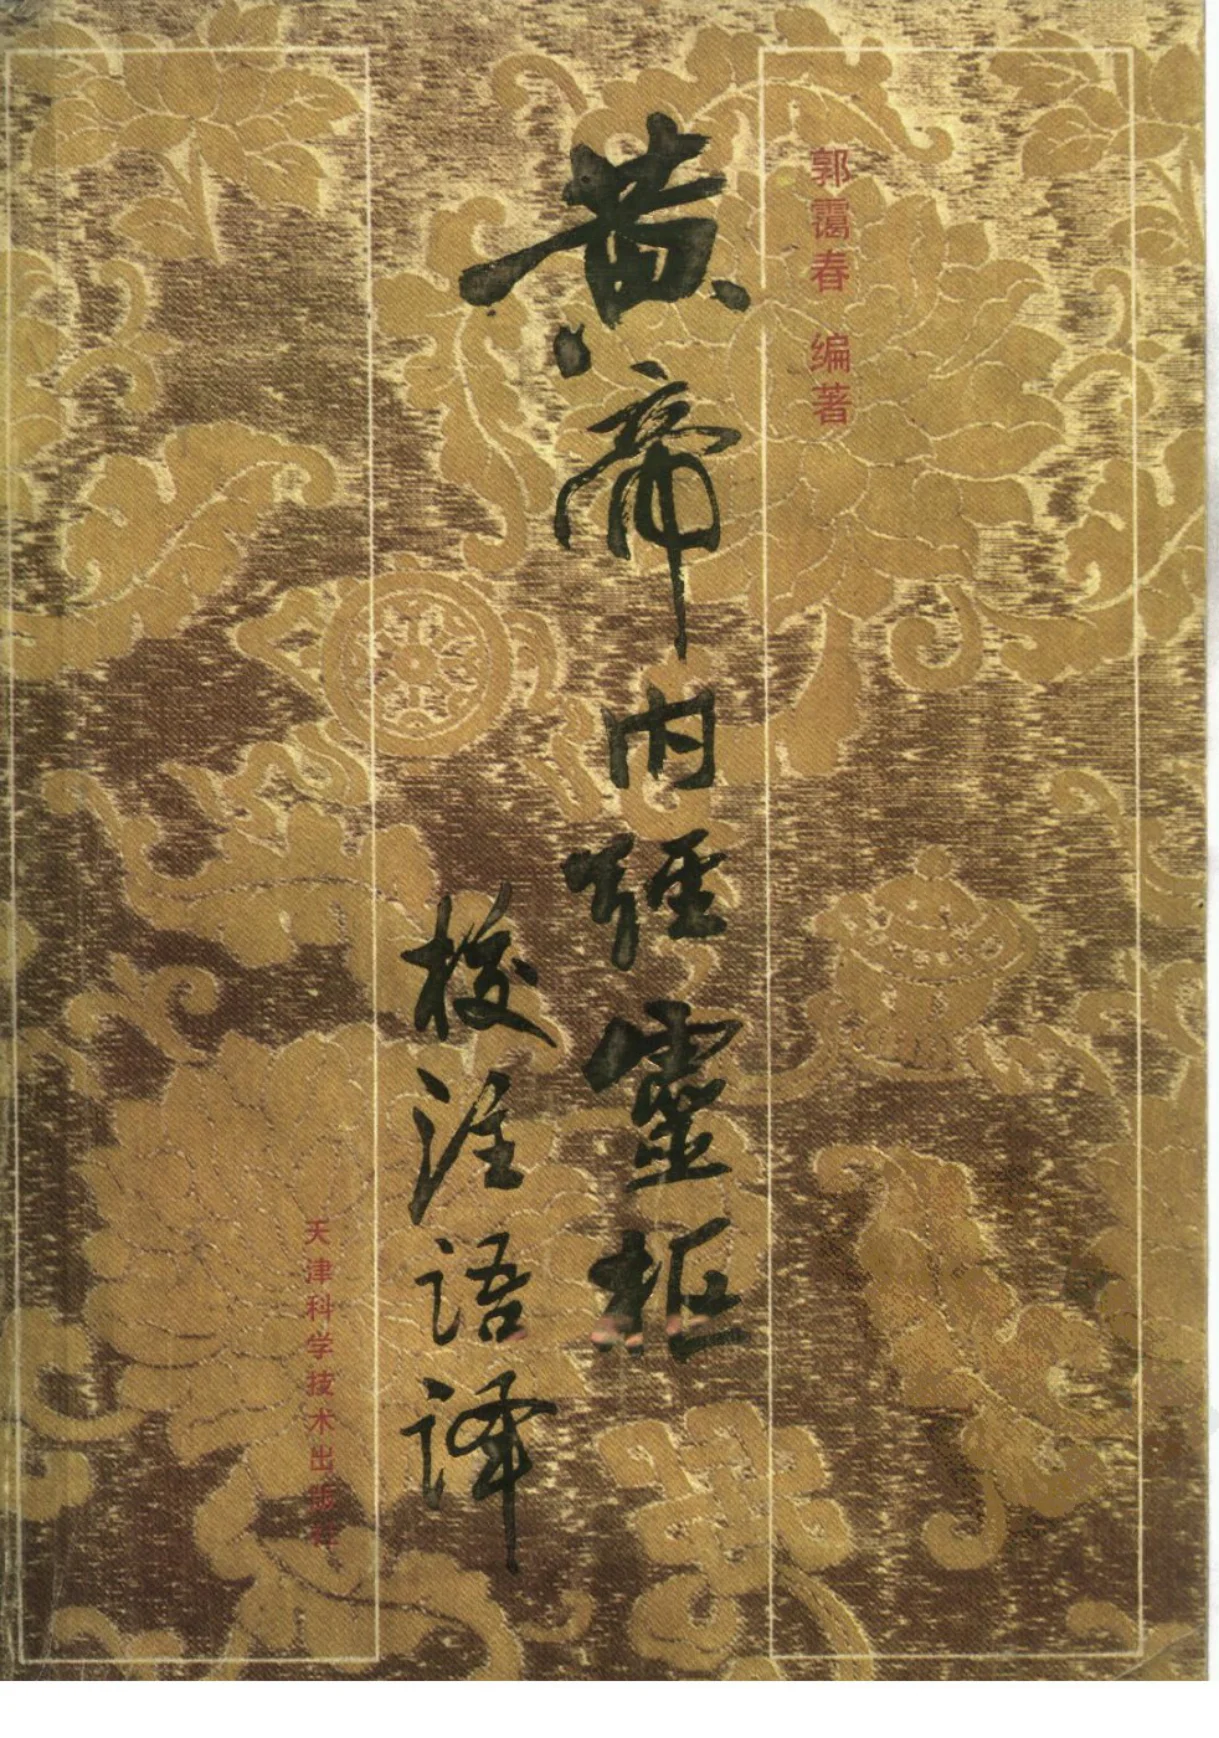 郭霭春 编著
黄帝内經靈枢
校注语译
天津科学技术出版社